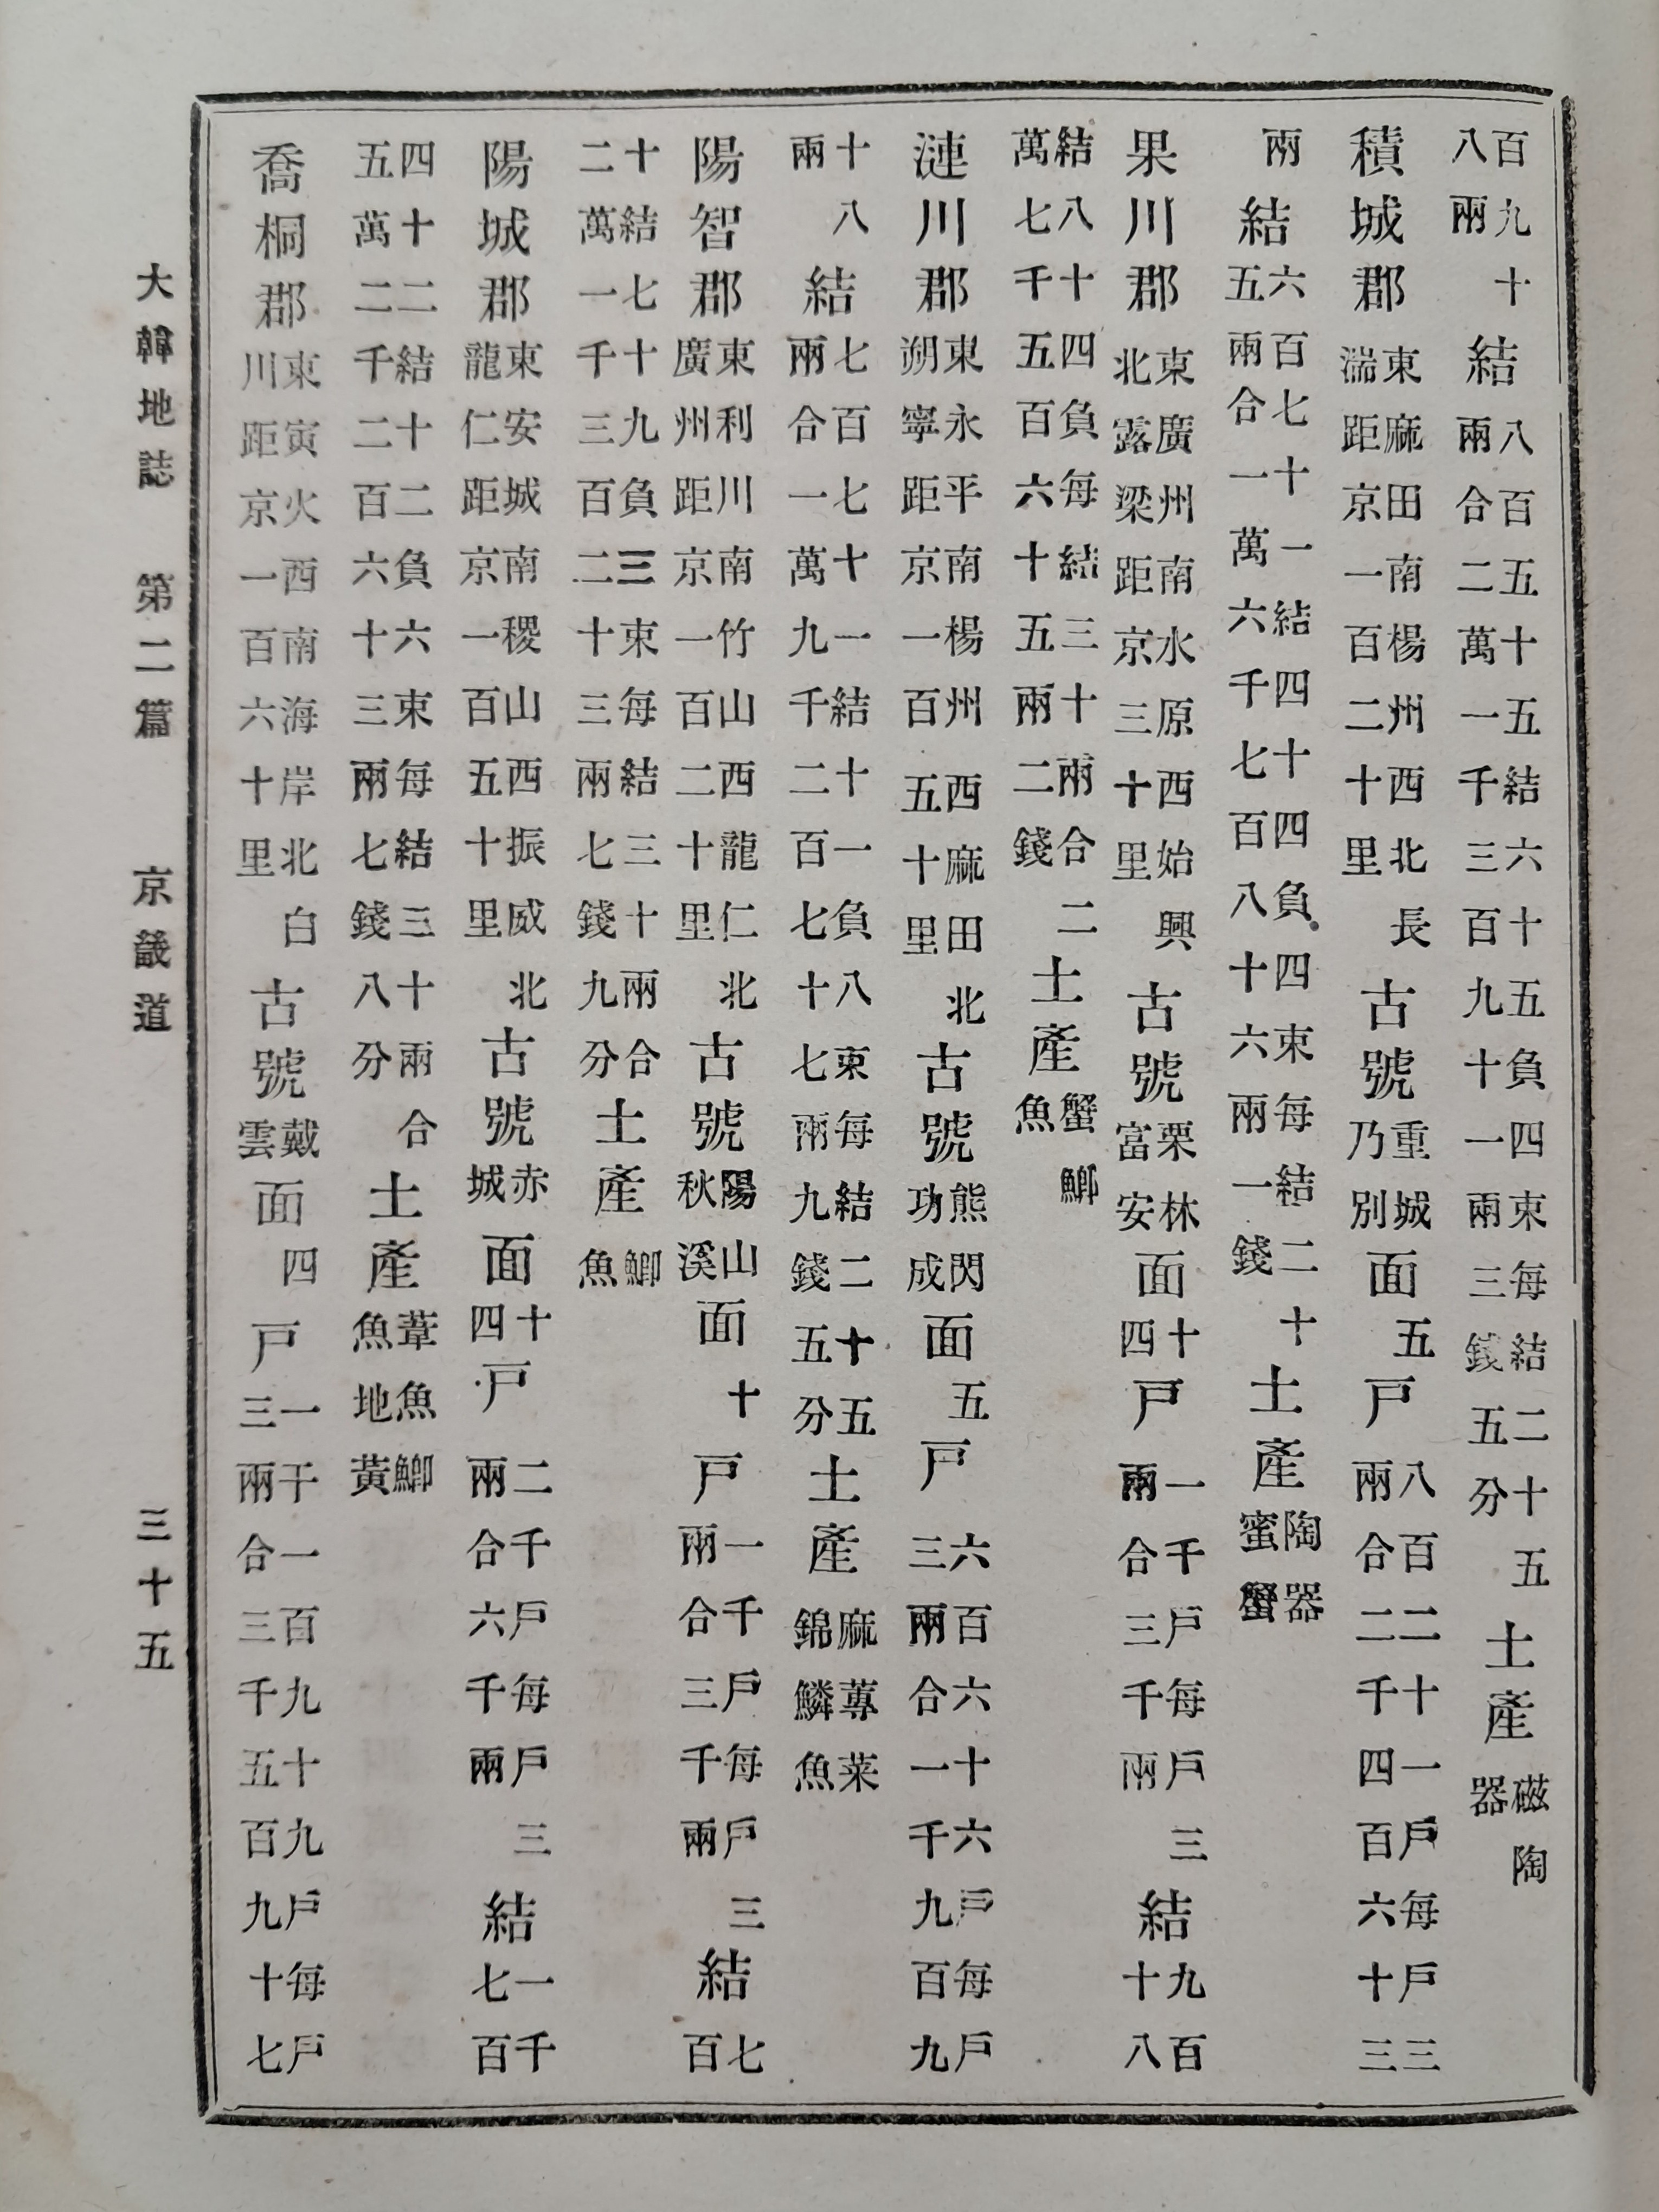 百九十八兩結八百五十五結六十五負四束每結二十五兩合二萬一千三百九十一兩三錢五分土產磁陶器
積城郡東麻田南楊州西北長湍距京一百二十里古號重城乃別面五戶八百二十一戶每戶三兩合二千四百六十三
兩結六百七十一結四十四負四束每結二十五兩合一萬六千七百八十六兩一錢土產陶器蜜蟹
果川郡東廣州南水原西始興北露梁距京三十里古號栗林富安面十四戶一千戶每戶三兩合三千兩結九百十八
結八十四負每結三十兩合二萬七千五百六十五兩二錢土產蟹鯽魚
漣川郡東永平南楊州西麻田北朔寧距京一百五十里古號熊閃功成面五戶六百六十六戶每戶三兩合一千九百九
十八兩結七百七十一結十一負八束每結二十五兩合一萬九千二百七十七兩九錢五分土產麻蓴菜錦鱗魚
陽智郡東利川南竹山西龍仁北廣州距京一百二十里古號陽山秋溪面十戶一千戶每戶三兩合三千兩結七百
十結七十九負三束每結三十兩合二萬一千三百二十三兩七錢九分土產鯽魚
陽城郡東安城南稷山西振威北龍仁距京一百五十里古號赤城面十四戶二千戶每戶三兩合六千兩結一千七百
四十二結十二負六束每結三十兩合五萬二千二百六十三兩七錢八分土產葦魚鯽魚地黃
喬桐郡東寅火西南海岸北白川距京一百六十里古號戴雲面四戶一千一百九十九戶每戶三兩合三千五百九十七
大韓地誌 第二篇 京畿道 三十五